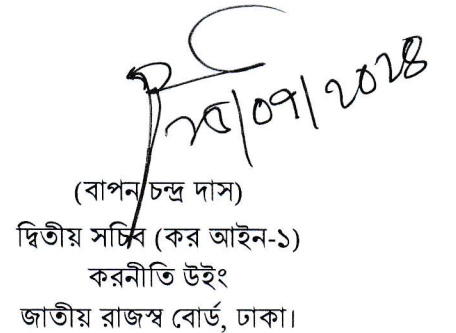 ২৫/০৭/২০২৪
(বাপন চন্দ্র দাস)
দ্বিতীয় সচিব (কর আইন-১)
করনীতি উইং
জাতীয় রাজস্ব বোর্ড, ঢাকা।